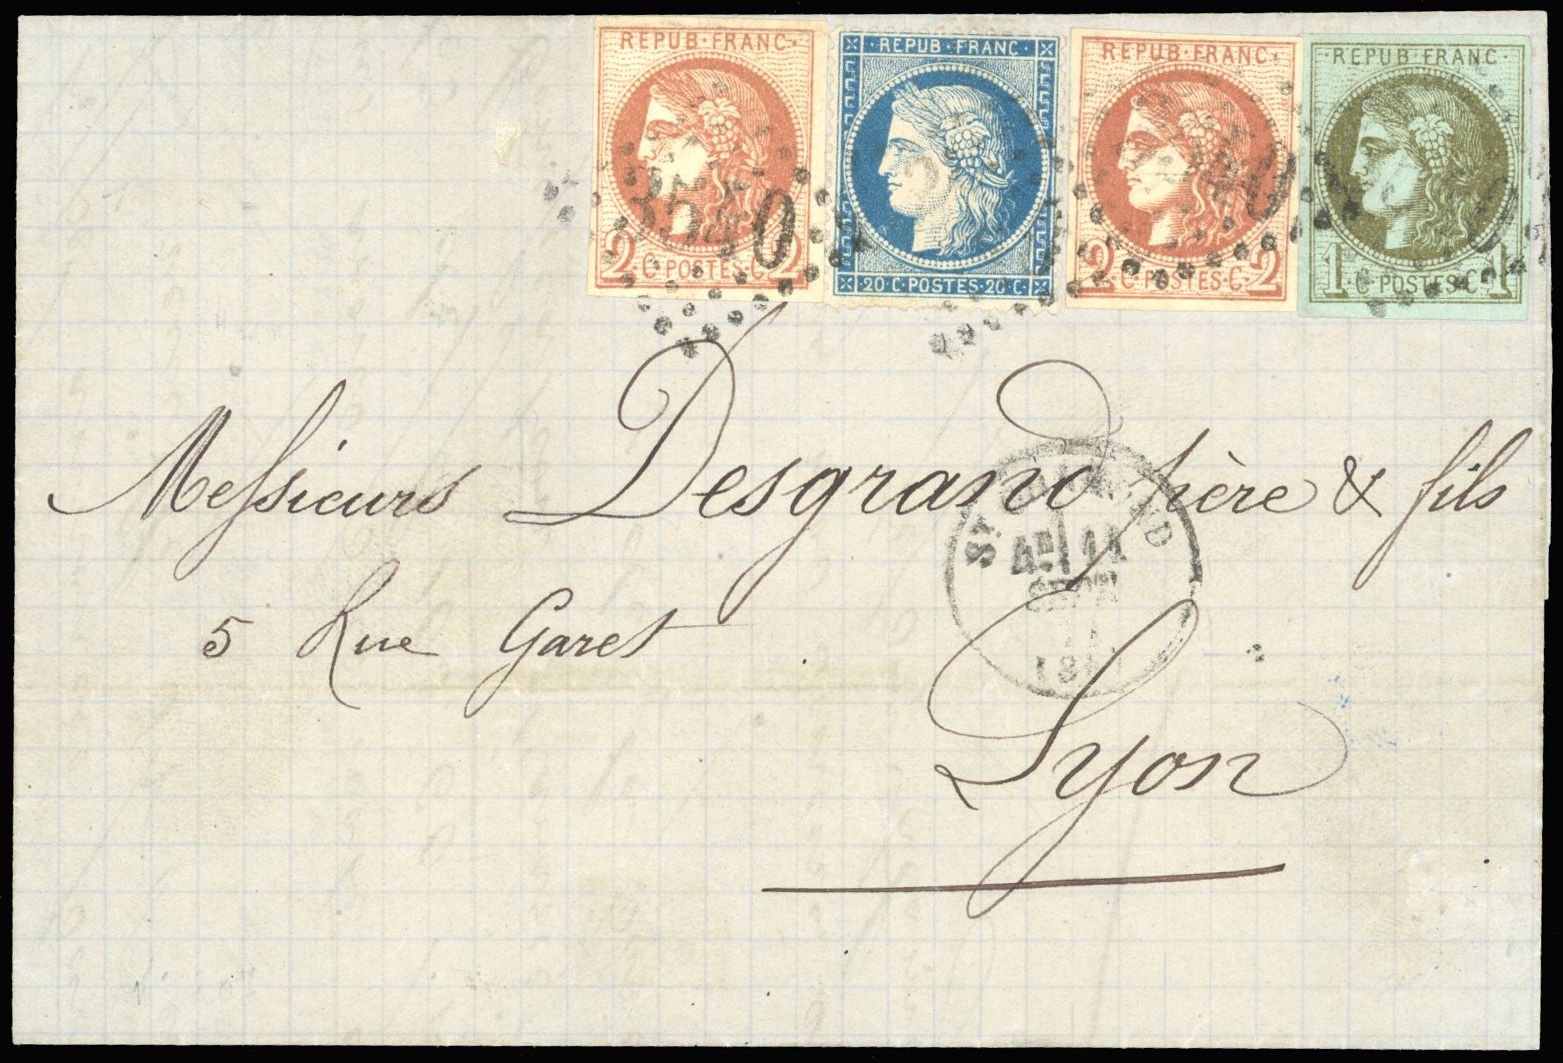 REPUB·FRANC·
2 ·C·POSTES·C· 2
REPUB·FRANC·
20·C·POSTES·20·C·
REPUB·FRANC·
2 ·C·POSTES·C· 2
REPUB·FRANC·
1 ·C·POSTES·C· 1
3540
Messieurs Desgrand père & fils
5 Rue Garet
Lyon
ST CHAMOND
14
SEPT